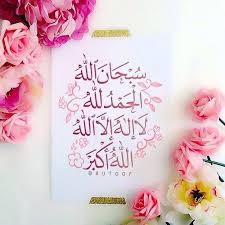 سُبْحَانَ اللهِ
الْحَمْدُ لِلهِ
لَا إِلَهَ إِلَّا اللهُ
اللهُ أَكْبَرُ